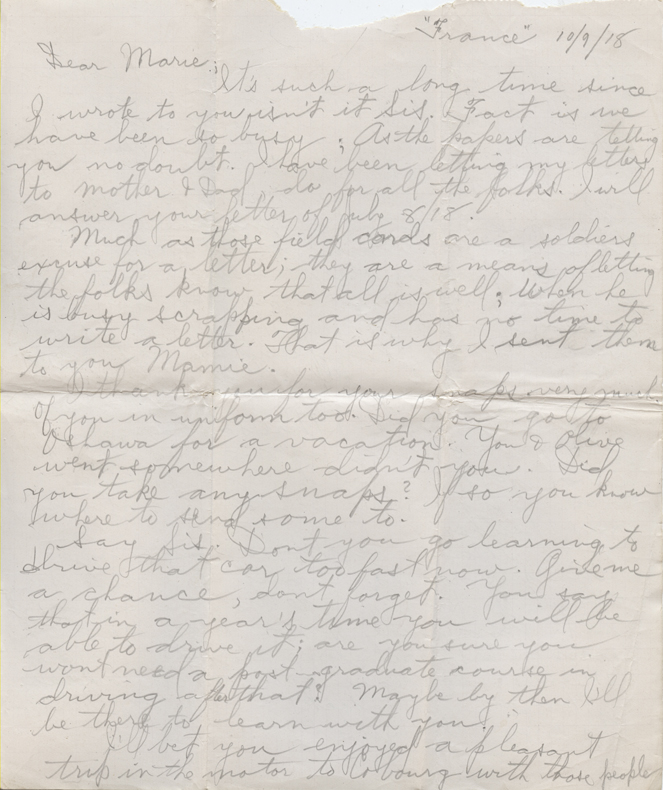 "France" 10/9/18
Dear Marie;
It's such a long time since
I wrote to you isn't it Sis. Fact is we
have been so busy ; As the papers are telling
you no doubt. I have been letting my letters
to mother & Dad do for all the folks. I will
answer your letter of July 8/18.
Much as those field cards are a soldiers
excuse for a letter; they are a means of letting
the folks know that all is well; When he
is busy scrapping and has no time to
write a letter. That is why I sent them
to you Mamie.
I thank you for your snaps very much.
Of you in uniform too. Did you go to
Oshawa for a vacation. You & Olive
went somewhere didn't you. Did
you take any snaps? If so you know
where to send some to.
Say Sis, Dont you go learning to
drive that car too fast now. Give me
a chance, dont forget. You say
that in a year's time you will be
able to drive it; are you sure you
wont need a post-graduate course in
driving after that? Maybe by then I'll
be there to learn with you.
I'll bet you enjoyed a pleasant
trip in the motor to Cobourg with those people